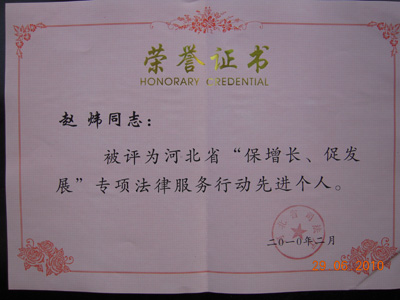 荣誉证书
HONORARY CREDENTIAL
赵炜同志：
被评为河北省“保增长、促发
展”专项法律服务行动先进个人。
二〇一〇年二月